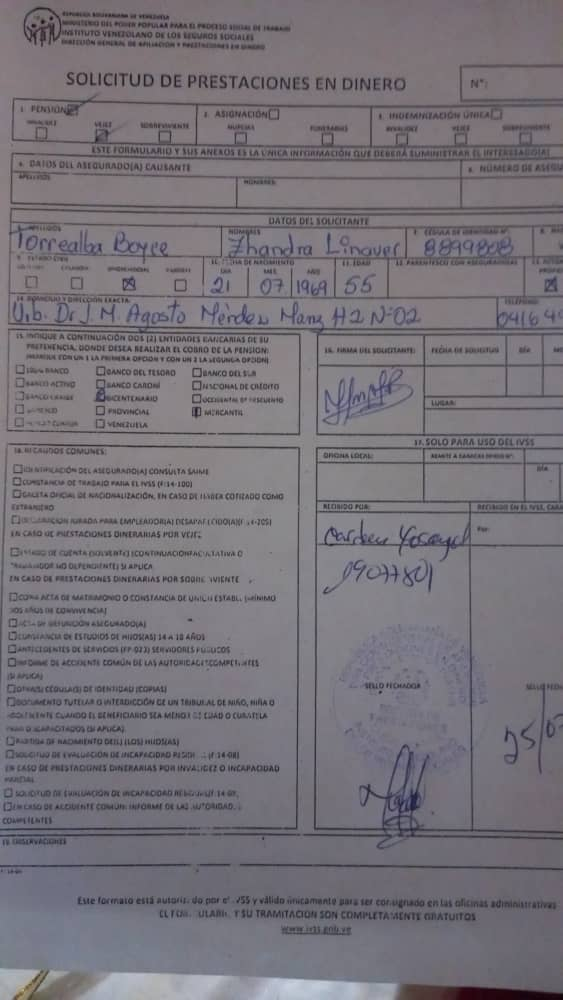 REPÚBLICA BOLIVARIANA DE VENEZUELA
MINISTERIO DEL PODER POPULAR PARA EL PROCESO SOCIAL DE TRABAJO
INSTITUTO VENEZOLANO DE LOS SEGUROS SOCIALES
DIRECCIÓN GENERAL DE AFILIACIÓN Y PRESTACIONES EN DINERO
SOLICITUD DE PRESTACIONES EN DINERO
N°:
1. PENSIÓN
2. ASIGNACIÓN
3. INDEMNIZACIÓN ÚNICA
INVALIDEZ VEJEZ SOBREVIVIENTE NUPCIAS FUNERARIAS INVALIDEZ VEJEZ SOBREVIVIENTE
ESTE FORMULARIO Y SUS ANEXOS ES LA ÚNICA INFORMACIÓN QUE DEBERÁ SUMINISTRAR EL INTERESADO(A)
4. DATOS DEL ASEGURADO(A) CAUSANTE
5. NÚMERO DE ASEGU
APELLIDOS NOMBRES:
DATOS DEL SOLICITANTE
APELLIDOS NOMBRES 7. CÉDULA DE IDENTIDAD N°: 8.
Torrealba Boyee 8899808
9. ESTADO CIVIL 10. FECHA DE NACIMIENTO 11. EDAD 12. PARENTESCO CON ASEGURADO(A)
DÍA MES AÑO
21 07 1969 55
14. DOMICILIO Y DIRECCIÓN EXACTA: TELÉFONO:
Urb. Dr J. M. Agosto Méndez Manz H2 N°02 0416 4
15. INDIQUE A CONTINUACIÓN DOS (2) ENTIDADES BANCARIAS DE SU
PREFERENCIA, DONDE DESEA REALIZAR EL COBRO DE LA PENSIÓN:
(MARQUE CON UN 1 LA PRIMERA OPCIÓN Y CON UN 2 LA SEGUNDA OPCIÓN)
100% BANCO BANCO DEL TESORO BANCO DEL SUR
BANCO ACTIVO BANCO CARONÍ NACIONAL DE CRÉDITO
BANCO CARIBE BICENTENARIO OCCIDENTAL DE DESCUENTO
PROVINCIAL MERCANTIL
VENEZUELA
16. FIRMA DEL SOLICITANTE: FECHA DE SOLICITUD DÍA
LUGAR:
17. SOLO PARA USO DEL IVSS
OFICINA LOCAL:
DÍA
RECIBIDO POR: RECIBIDO EN EL IVSS, CARA
Por:
19077801
SELLO FECHADOR
SELLO FECH
25/0
18. RECAUDOS COMUNES:
IDENTIFICACIÓN DEL ASEGURADO(A) CONSULTA SAIME
CONSTANCIA DE TRABAJO PARA EL IVSS (F:14-100)
GACETA OFICIAL DE NACIONALIZACIÓN, EN CASO DE HABER COTIZADO COMO
EXTRANJERO
DECLARACIÓN JURADA PARA EMPLEADOR(A) DESAPARECIDO(A)
EN CASO DE PRESTACIONES DINERARIAS POR VEJEZ
ESTADO DE CUENTA (SOLVENTE) (CONTINUACIÓN FACULTATIVA O
TRABAJADOR NO DEPENDIENTE) SI APLICA
EN CASO DE PRESTACIONES DINERARIAS POR SOBREVIVIENTE
COPIA ACTA DE MATRIMONIO O CONSTANCIA DE UNIÓN ESTABLE (MÍNIMO
DOS AÑOS DE CONVIVENCIA)
ACTA DE DEFUNCIÓN ASEGURADO(A)
CONSTANCIA DE ESTUDIOS DE HIJOS(AS) 14 A 18 AÑOS
ANTECEDENTES DE SERVICIOS (FP-023) SERVIDORES PÚBLICOS
INFORME DE ACCIDENTE COMÚN DE LAS AUTORIDADES COMPETENTES
(SI APLICA)
OTRA(S) CÉDULA(S) DE IDENTIDAD (COPIAS)
DOCUMENTO TUTELAR O INTERDICCIÓN DE UN TRIBUNAL DE NIÑO, NIÑA O
ADOLESCENTE CUANDO EL BENEFICIARIO SEA MENOR DE EDAD O CURATELA
PARA INCAPACITADOS (SI APLICA)
PARTIDA DE NACIMIENTO DE(L) (LOS) HIJOS(AS)
SOLICITUD DE EVALUACIÓN DE INCAPACIDAD RESIDUAL (F:14-08)
EN CASO DE PRESTACIONES DINERARIAS POR INVALIDEZ O INCAPACIDAD
PARCIAL
SOLICITUD DE EVALUACIÓN DE INCAPACIDAD RESIDUAL
EN CASO DE ACCIDENTE COMÚN: INFORME DE LAS AUTORIDADES
COMPETENTES
19. OBSERVACIONES
Este formato está autorizado por el IVSS y válido únicamente para ser consignado en las oficinas administrativas
EL FORMULARIO Y SU TRAMITACIÓN SON COMPLETAMENTE GRATUITOS
www.ivss.gob.ve